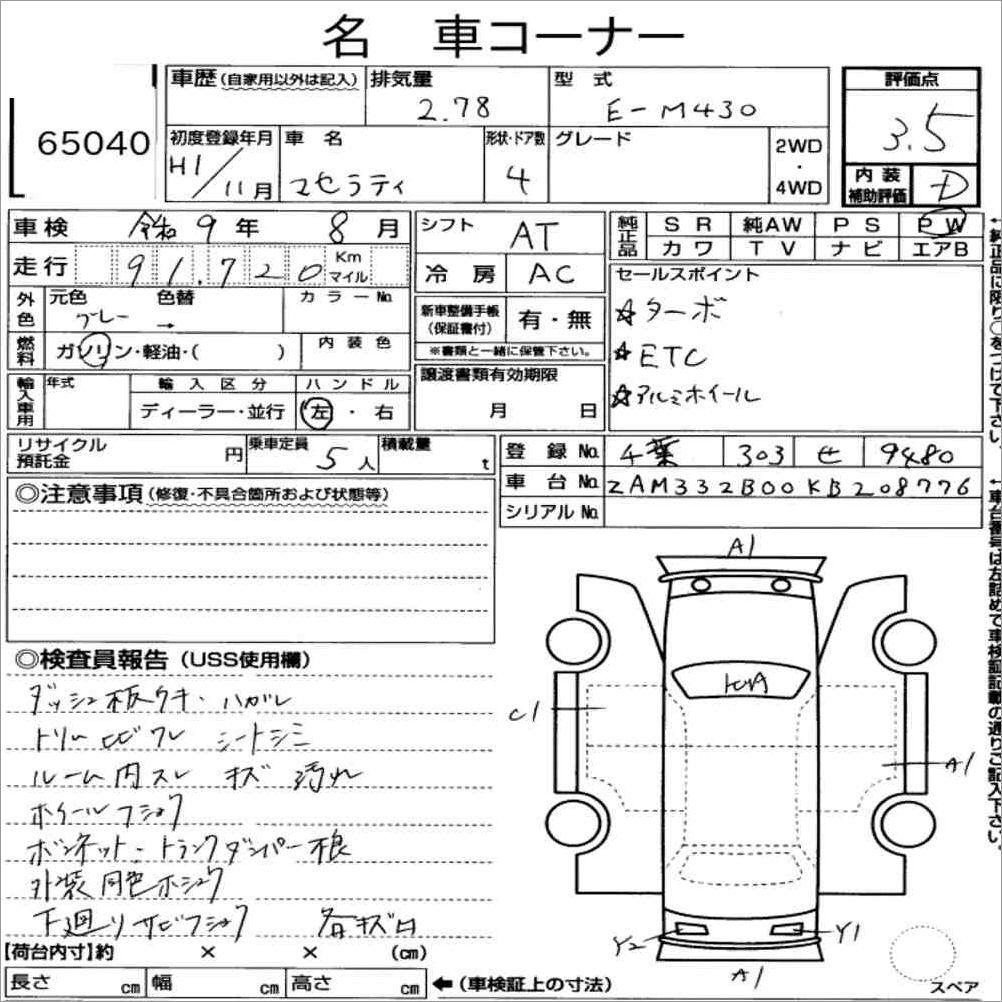 名 車コーナー
65040
車歴(自家用以外は記入) 排気量 2.78 型 式 E-M430 評価点 3.5
初度登録年月 H1/11月 車 名 マセラティ 形状・ドア数 4 グレード 2WD・4WD 内装補助評価 D
車検 令和 9 年 8 月 シフト AT 純正品 SR 純AW PS PW
走行 91,720 Km マイル 冷房 AC カワ TV ナビ エアB
外色 元色 グレー 色替 → カラーNo. 新車整備手帳(保証書付) 有・無 セールスポイント
☆ターボ
燃料 ガソリン・軽油・( ) 内装色 ※書類と一緒に保管下さい。 ☆ETC
輸入車用 年式 輸入区分 ハンドル 譲渡書類有効期限 ☆アルミホイール
ディーラー・並行 左・右 月 日
リサイクル預託金 円 乗車定員 5人 積載量 t 登録No. 千葉 303 せ 9480
車台No. ZAM332B00KB208776
シリアルNo.
◎注意事項(修復・不具合箇所および状態等)
◎検査員報告(USS使用欄)
ダッシュ板ウキ・ハガレ
トリム ヒビワレ シートシミ
ルーム内スレ キズ 汚れ
ホイールフショク
ボンネット・トランクダンパー不良
外装同色ホシュウ
下廻りサビフショク 各キズ凹
A1
C1
A1
Y2
Y1
A1
【荷台内寸】約 × × (cm)
長さ cm 幅 cm 高さ cm ←(車検証上の寸法)
スペア
↑純正品に限り○をつけて下さい。
↑車台番号は左詰めで車検証記載の通りご記入下さい。